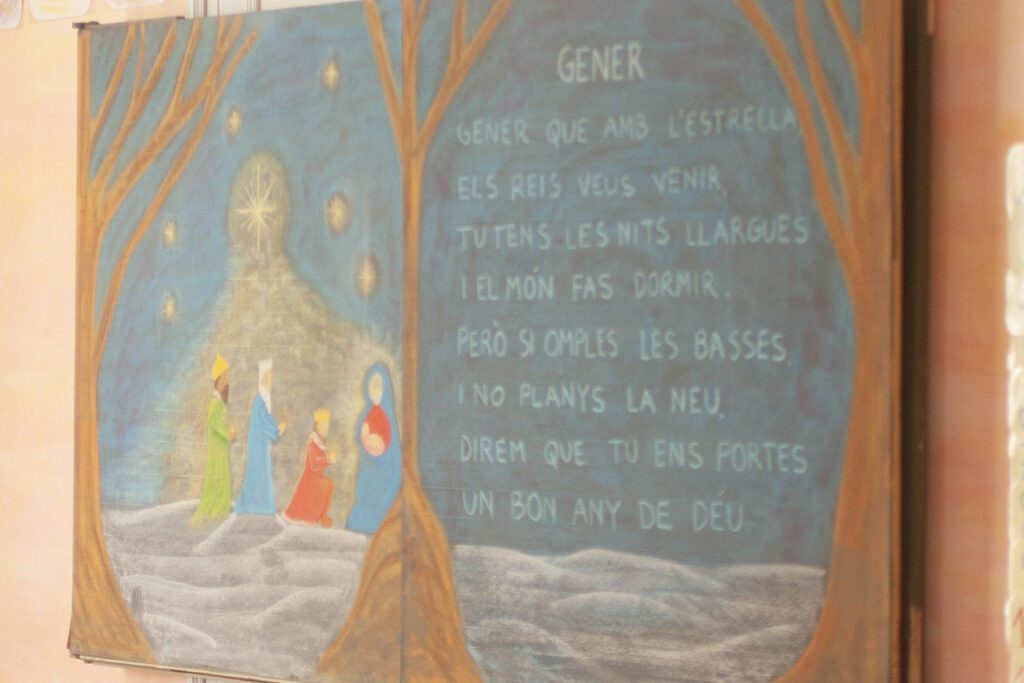 GENER
GENER QUE AMB L'ESTRELLA,
ELS REIS VEUS VENIR,
TU TENS LES NITS LLARGUES
I EL MÓN FAS DORMIR.
PERÒ SI OMPLES LES BASSES
I NO PLANYS LA NEU,
DIREM QUE TU ENS PORTES
UN BON ANY DE DÉU